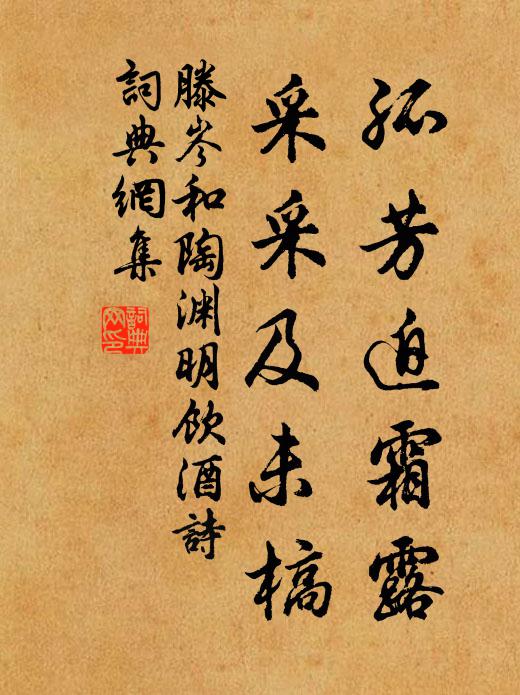 孤芳迫霜露
采采及未槁
滕岑和陶渊明飲酒詩
詞典網集
詞典
网印